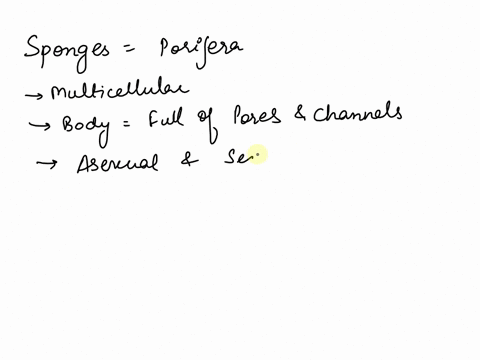 Sponges = Porifera
→ Multicellular
→ Body = Full of Pores & channels
→ Asexual & Se